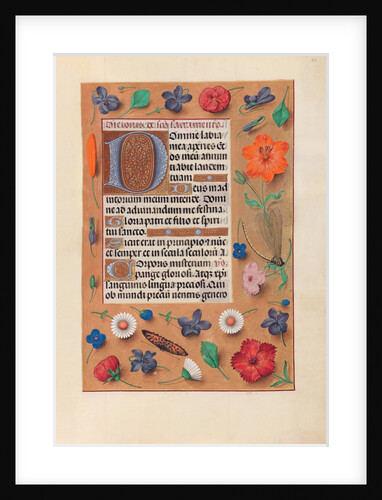 Die Iouis de sco sacramento.
Domine labia
mea aperies Et
os meu annun
tiabit laudem
tuam
Deus in ad
iutorium meum intende Domi
ne ad adiuuandum me festina
Gloria patri et filio et spiri
tui sancto.
Sicut erat in principio et nūc
et semper et in secula seculorū a
Corporis misterium
pange gloriosi. Atqz
sanguinis lingua preciosi. Qu
ob mundi precium uentris genero